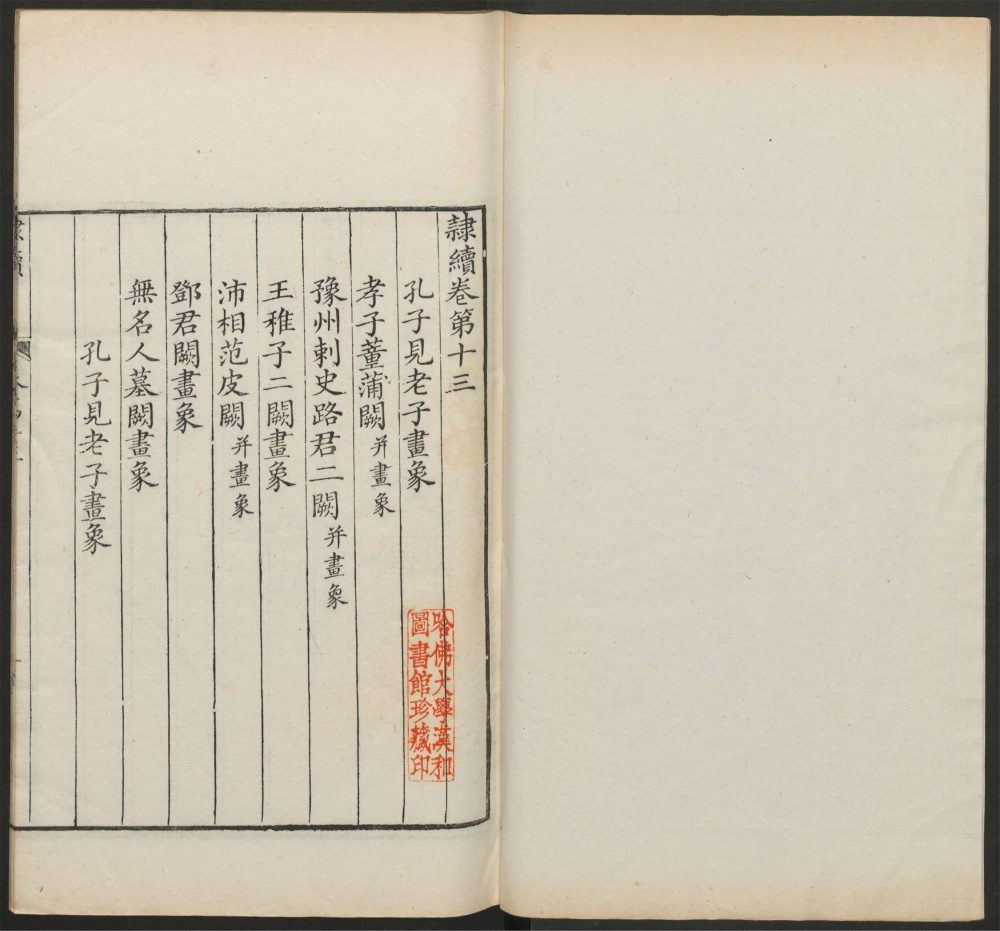 隷續卷第十三
孔子見老子畫象
孝子董蒲闕并畫象
豫州刺史路君二闕并畫象
王稚子二闕畫象
沛相范皮闕并畫象
鄧君闕畫象
無名人墓闕畫象
孔子見老子畫象
哈佛大學漢和
圖書館珍藏印